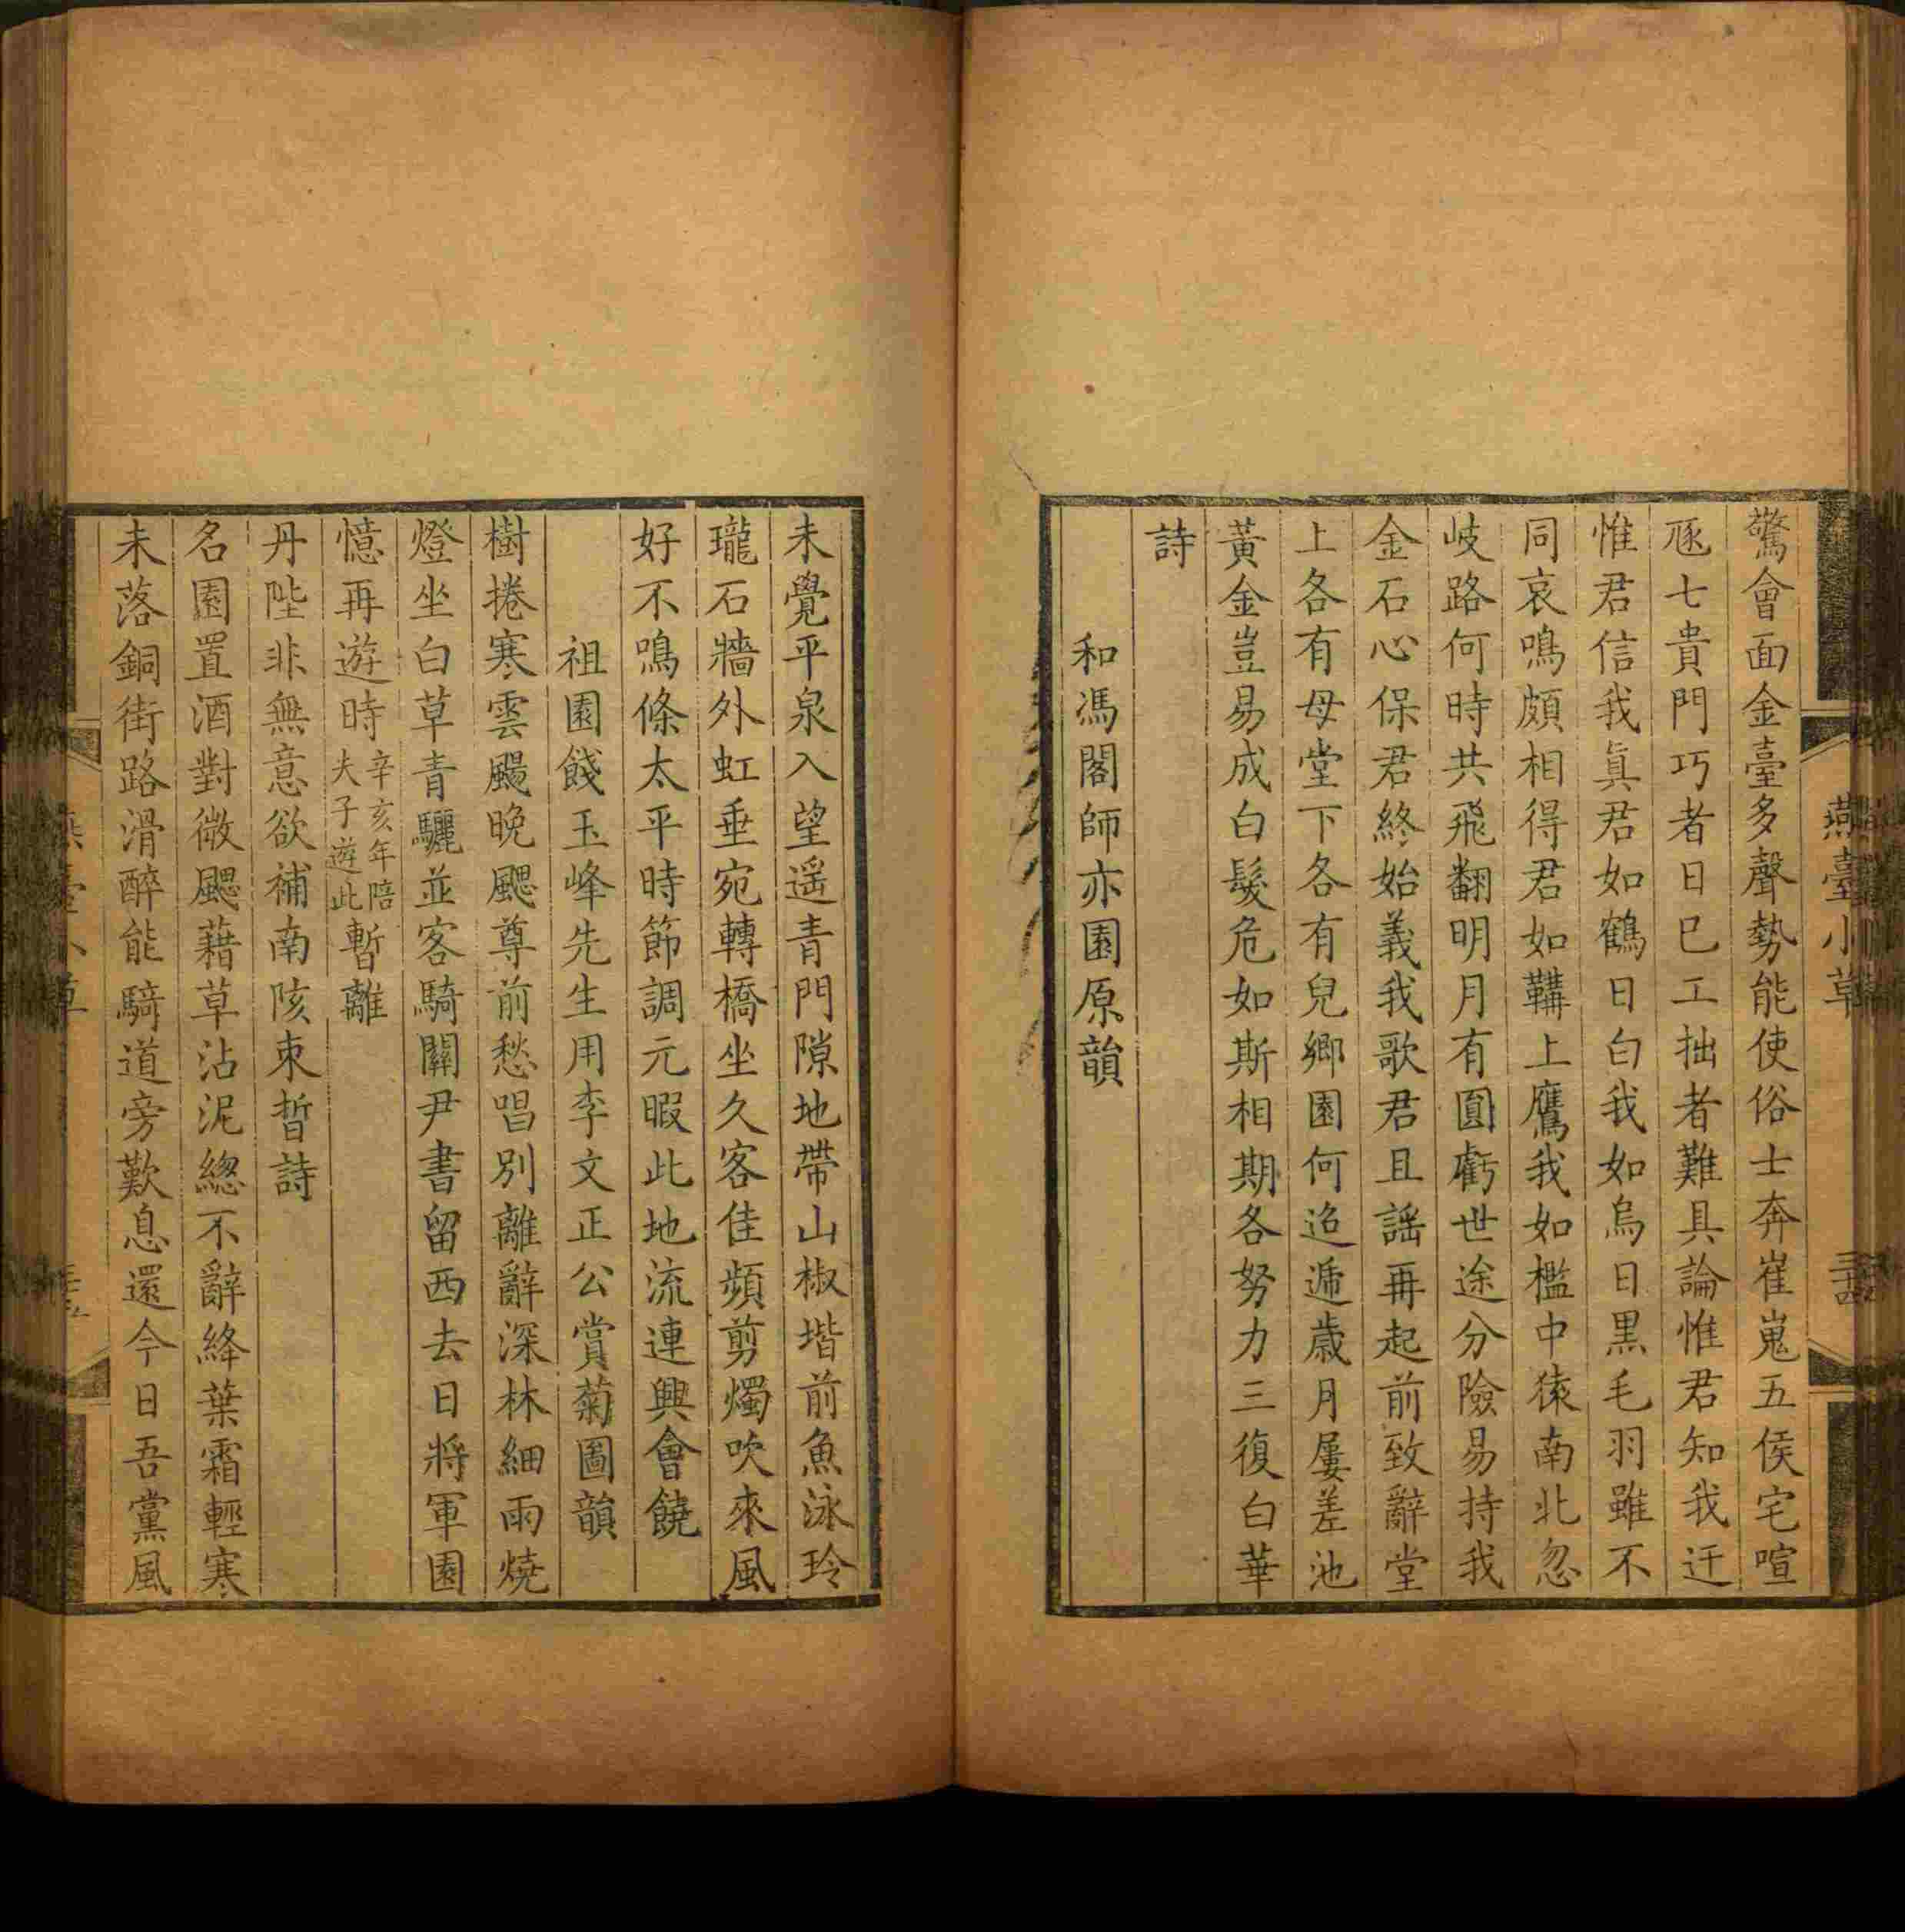 燕臺小草
三十四
驚會面金臺多聲勢能使俗士奔崔嵬五侯宅喧
豗七貴門巧者日已工拙者難具論惟君知我迂
惟君信我眞君如鶴日白我如烏日黒毛羽雖不
同哀鳴頗相得君如鞲上鷹我如檻中猿南北忽
岐路何時共飛翻明月有圓虧世途分險易持我
金石心保君終始義我歌君且謡再起前致辭堂
上各有母堂下各有兒鄉園何迢遞歳月屢差池
黃金豈易成白髮危如斯相期各努力三復白華
詩
和馮閣師亦園原韻
未覺平泉入望遥青門隙地帶山椒堦前魚泳玲
瓏石牆外虹垂宛轉橋坐久客佳頻剪燭吹來風
好不鳴條太平時節調元暇此地流連興會饒
祖園餞玉峰先生用李文正公賞菊圖韻
樹捲寒雲颺晚颸尊前愁唱別離辭深林細雨燒
燈坐白草青驪並客騎關尹書留西去日將軍園
憶再遊時辛亥年陪夫子遊此暫離
丹陛非無意欲補南陔束晳詩
名園置酒對微颸藉草沾泥總不辭絳葉霜輕寒
未落銅街路滑醉能騎道旁歎息還今日吾黨風